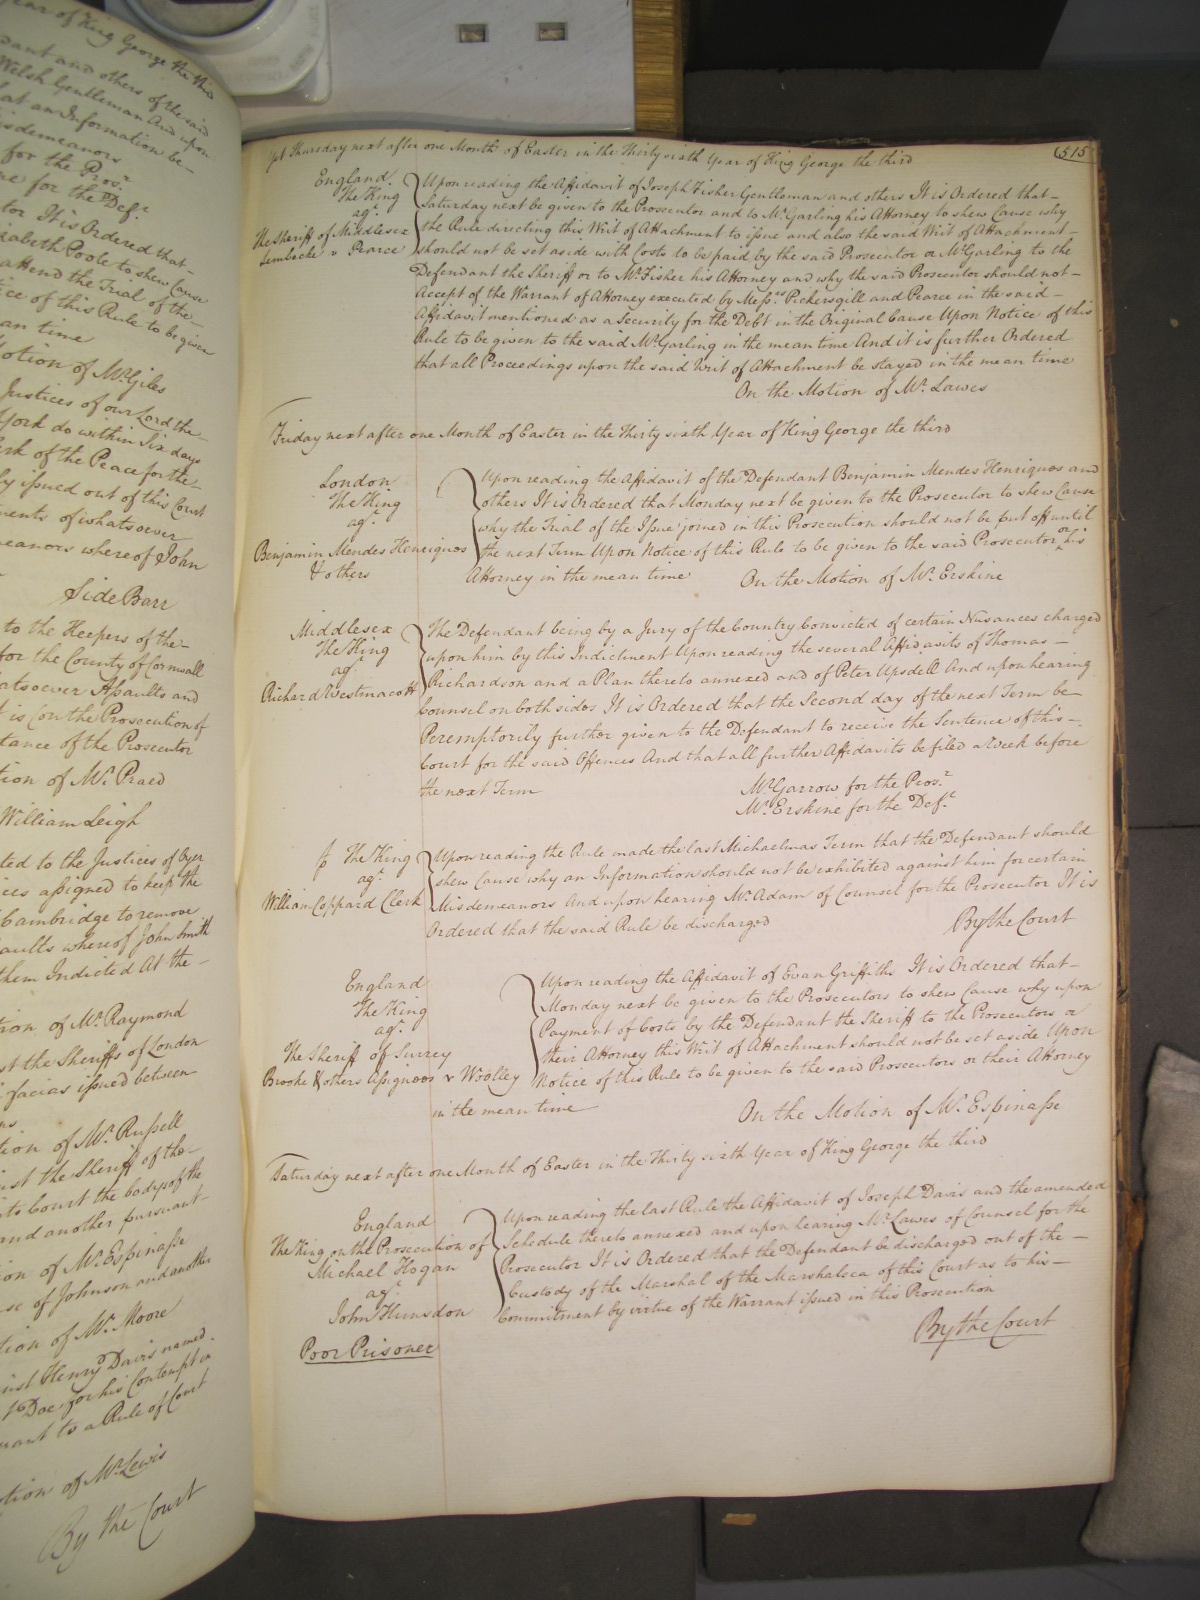 Year of King George the third
dant and others of the said
Welsh Gentleman And upon
at an Information be
isdemeanors
for the Pros.r
ne for the Def.t
tor It is Ordered that
izabeth Poole to shew Cause
attend the Trial of the
ice of this Rule to be given
an time
Motion of Mr. Giles
Justices of our Lord the
York do within Six days
erk of the Peace for the
ly issued out of this Court
ments of whatsoever
meanors whereof John
Side Barr
to the Keepers of the
for the County of Cornwall
atsoever Assaults and
t is (on the Prosecution of
tance of the Prosecutor
tion of Mr. Praed
William Leigh
ted to the Justices of Oyer
ices assigned to keep the
Cambridge to remove
aults whereof John Smith
them Indicted At the
tion of Mr. Raymond
st the Sheriffs of London
facias issued between
tion of Mr. Russell
inst the Sheriff of the
nto Court the body of the
and another pursuant
ion of Mr. Espinasse
se of Johnson and another
tion of Mr. Moore
inst Henry Davis named
Doe for his Contempt in
uant to a Rule of Court
otion of Mr. Lewis
By the Court
515
Yet Thursday next after one Month of Easter in the Thirty sixth Year of King George the third
England
The King
agt.
The Sheriff of Middlesex
Lembecke v Pearce
Upon reading the Affidavit of Joseph Fisher Gentleman and others It is Ordered that
Saturday next be given to the Prosecutor and to Mr. Garling his Attorney to shew Cause why
the Rule directing this Writ of Attachment to issue and also the said Writ of Attachment
should not be set aside with Costs to be paid by the said Prosecutor or Mr. Garling to the
Defendant the Sheriff or to Mr. Fisher his Attorney and why the said Prosecutor should not
Accept of the Warrant of Attorney executed by Mess.rs Pickersgill and Pearce in the said
Affidavit mentioned as a Security for the Debt in the Original Cause Upon Notice of this
Rule to be given to the said Mr. Garling in the mean time And it is further Ordered
that all Proceedings upon the said Writ of Attachment be stayed in the mean time
On the Motion of Mr. Lawes
Friday next after one Month of Easter in the Thirty sixth Year of King George the third
London
The King
agt.
Benjamin Mendes Henriques
& others
Upon reading the Affidavit of the Defendant Benjamin Mendes Henriques and
others It is Ordered that Monday next be given to the Prosecutor to shew Cause
why the Trial of the Issue joined in this Prosecution should not be put off until
the next Term Upon Notice of this Rule to be given to the said Prosecutor or his
Attorney in the mean time On the Motion of Mr. Erskine
Middlesex
The King
agt.
Richard Westmacott
The Defendant being by a Jury of the Country Convicted of certain Nusances charged
upon him by this Indictment Upon reading the several Affidavits of Thomas
Richardson and a Plan thereto annexed and of Peter Upsdell And upon hearing
Counsel on both sides It is Ordered that the Second day of the next Term be
Peremptorily further given to the Defendant to receive the Sentence of this
Court for the said Offences And that all further Affidavits be filed a Week before
the next Term
Mr. Garrow for the Pros.r
Mr. Erskine for the Def.t
The King
agt.
William Coppard Clerk
Upon reading the Rule made the last Michaelmas Term that the Defendant should
shew Cause why an Information should not be exhibited against him for certain
Misdemeanors And upon hearing Mr. Adam of Counsel for the Prosecutor It is
Ordered that the said Rule be discharged By the Court
England
The King
agt.
The Sheriff of Surrey
Brooke & others Assignees v Woolley
Upon reading the Affidavit of Evan Griffiths It is Ordered that
Monday next be given to the Prosecutors to shew Cause why upon
Payment of Costs by the Defendant the Sheriff to the Prosecutors or
their Attorney this Writ of Attachment should not be set aside Upon
Notice of this Rule to be given to the said Prosecutors or their Attorney
in the mean time On the Motion of Mr. Espinasse
Saturday next after one Month of Easter in the Thirty sixth Year of King George the third
England
The King on the Prosecution of
Michael Hogan
agt.
John Hunsdon
Poor Prisoner
Upon reading the last Rule the Affidavit of Joseph Davis and the amended
Schedule thereto annexed and upon hearing Mr. Lawes of Counsel for the
Prosecutor It is Ordered that the Defendant be discharged out of the
Custody of the Marshal of the Marshalsea of this Court as to his
Commitment by virtue of the Warrant issued in this Prosecution
By the Court